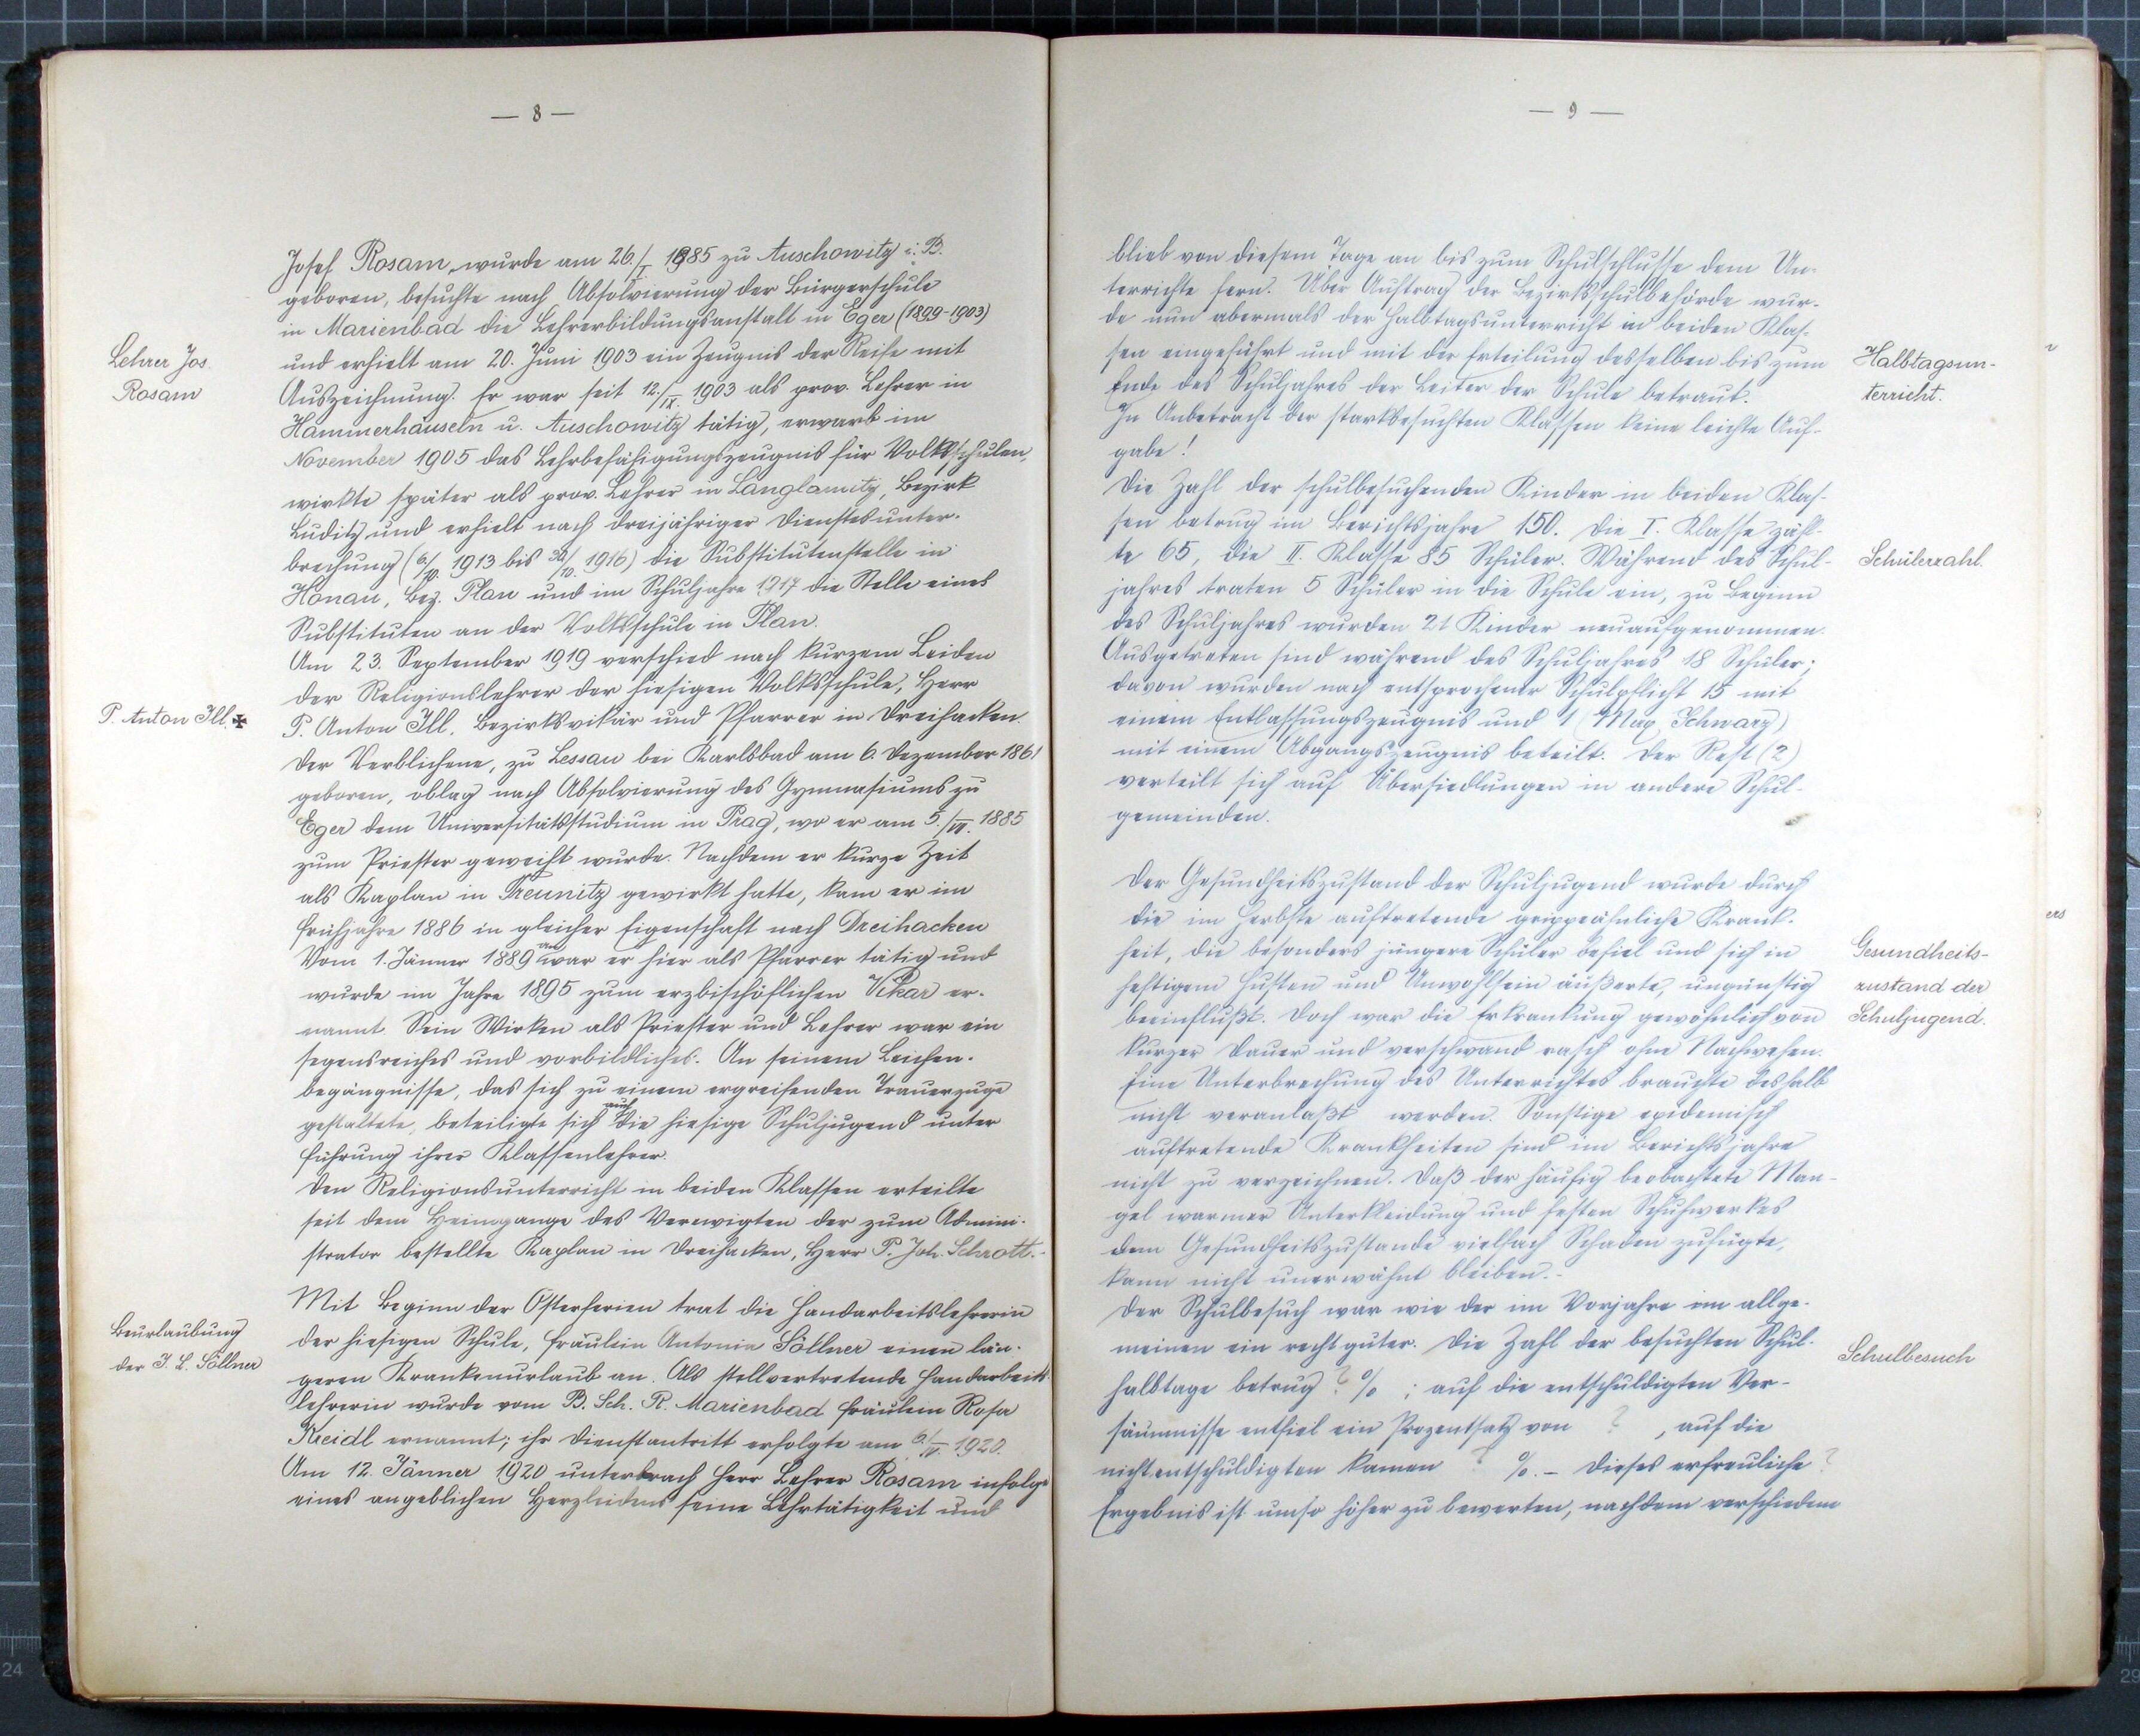 — 8 —
Josef Rosam, wurde am 26./I. 1885 zu Auschowitz i. B.
geboren, besuchte nach Absolvierung der Bürgerschule
in Marienbad die Lehrerbildungsanstalt in Eger (1899-1903)
Lehrer Jos.
Rosam
und erhielt am 20. Juni 1903 ein Zeugnis der Reife mit
Auszeichnung. Er war seit 12./IX. 1903 als prov. Lehrer in
Hammerhäuseln u. Auschowitz tätig, erwarb im
November 1905 das Lehrbefähigungszeugnis für Volksschulen,
wirkte später als prov. Lehrer in Langlamitz, Bezirk
Luditz und erhielt nach dreijähriger Dienstesunter-
brechung ( 1913 bis 1916) die Substitutenstelle in
Honau, Bez. Plan und im Schuljahre 1917 die Stelle eines
Substituten an der Volksschule in Plan.
Am 23. September 1919 verschied nach kurzem Leiden
der Religionslehrer der hiesigen Volksschule, Herr
P. Anton Ill. ✠
P. Anton Ill, Bezirksvikär und Pfarrer in Dreihacken.
Der Verblichene, zu Lessau bei Karlsbad am 6. Dezember 1861
geboren, oblag nach Absolvierung des Gymnasiums zu
Eger dem Universitätsstudium in Prag, wo er am 5./VII. 1885
zum Priester geweiht wurde. Nachdem er kurze Zeit
als Kaplan in Treunitz gewirkt hatte, kam er im
Frühjahre 1886 in gleicher Eigenschaft nach Dreihacken
Vom 1. Jänner 1889 an war er hier als Pfarrer tätig und
wurde im Jahre 1895 zum erzbischöflichen Vikar er-
nannt. Sein Wirken als Priester und Lehrer war ein
segensreiches und vorbildliches. An seinem Leichen-
begängnisse, das sich zu einem ergreifenden Trauerzuge
gestaltete, beteiligte sich auch die hiesige Schuljugend unter
Führung ihrer Klassenlehrer.
Den Religionsunterricht in beiden Klassen erteilte
seit dem Heimgange des Verewigten der zum Admini-
strator bestellte Kaplan in Dreihacken, Herr P. Joh. Schrott.-
Mit Beginn der Osterferien trat die Handarbeitslehrerin
Beurlaubung
der J. L. Söllner
der hiesigen Schule, Fräulein Antonia Söllner einen län-
geren Krankenurlaub an. Als stellvertretende Handarbeits-
lehrerin wurde vom B. Sch. R. Marienbad Fräulein Rosa
Kreidl ernannt; ihr Dienstantritt erfolgte am 6./IV. 1920.
Am 12. Jänner 1920 unterbrach Herr Lehrer Rosam infolge
eines angeblichen Herzleidens seine Lehrtätigkeit und
— 9 —
blieb von diesem Tage an bis zum Schulschlusse dem Un-
terrichte fern. Über Auftrag der Bezirksschulbehörde wur-
de nun abermals der Halbtagsunterricht in beiden Klas-
sen eingeführt und mit der Erteilung desselben bis zum
Halbtagsun-
terricht.
Ende des Schuljahres der Leiter der Schule betraut.
In Anbetracht der starkbesuchten Klassen keine leichte Auf-
gabe!
Die Zahl der schulbesuchenden Kinder in beiden Klas-
sen betrug im Berichtsjahre 150. Die I. Klasse zähl-
te 65, die II. Klasse 85 Schüler. Während des Schul-
Schülerzahl.
jahres traten 5 Schüler in die Schule ein, zu Beginn
des Schuljahres wurden 21 Kinder neuaufgenommen.
Ausgetreten sind während des Schuljahres 18 Schüler;
davon wurden nach entsprochener Schulpflicht 15 mit
einem Entlassungszeugnis und 1 (Max Schwarz)
mit einem Abgangszeugnis beteilt. Der Rest (2)
verteilt sich auf Übersiedlungen in andere Schul-
gemeinden.
Der Gesundheitszustand der Schuljugend wurde durch
die im Herbste auftretende grippeähnliche Krank-
heit, die besonders jüngere Schüler befiel und sich in
Gesundheits-
zustand der
Schuljugend.
heftigem Husten und Unwohlsein äußerte, ungünstig
beeinflußt. Doch war die Erkrankung gewöhnlich von
kurzer Dauer und verschwand rasch ohne Nachwehen.
Eine Unterbrechung des Unterrichtes brauchte deshalb
nicht veranlaßt werden. Sonstige epidemisch
auftretende Krankheiten sind im Berichtsjahre
nicht zu verzeichnen. Daß der häufig beobachtete Man-
gel warmer Unterkleidung und festen Schuhwerkes
dem Gesundheitszustande vielfach Schaden zufügte,
kann nicht unerwähnt bleiben.-
Der Schulbesuch war wie der im Vorjahre im allge-
meinen ein recht guter. Die Zahl der besuchten Schul-
Schulbesuch
halbtage betrug ? %; auf die entschuldigten Ver-
säumnisse entfiel ein Prozentsatz von ? , auf die
nichtentschuldigten kamen ? %. – Dieses erfreuliche ?
Ergebnis ist umso höher zu bewerten, nachdem verschiedene